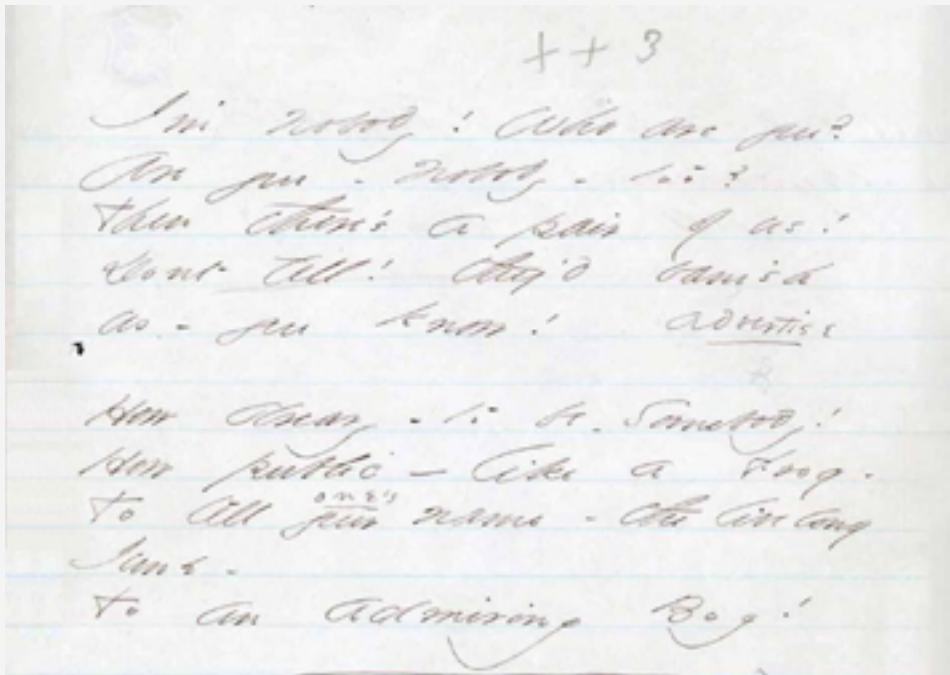 + + 3
I'm Nobody! Who are you?
Are you - Nobody - too?
Then there's a pair of us!
Dont tell! they'd banish
us - you know! advertise
How dreary - to be - Somebody!
How public - like a Frog -
one's
To tell your name - the livelong
June -
To an admiring Bog!